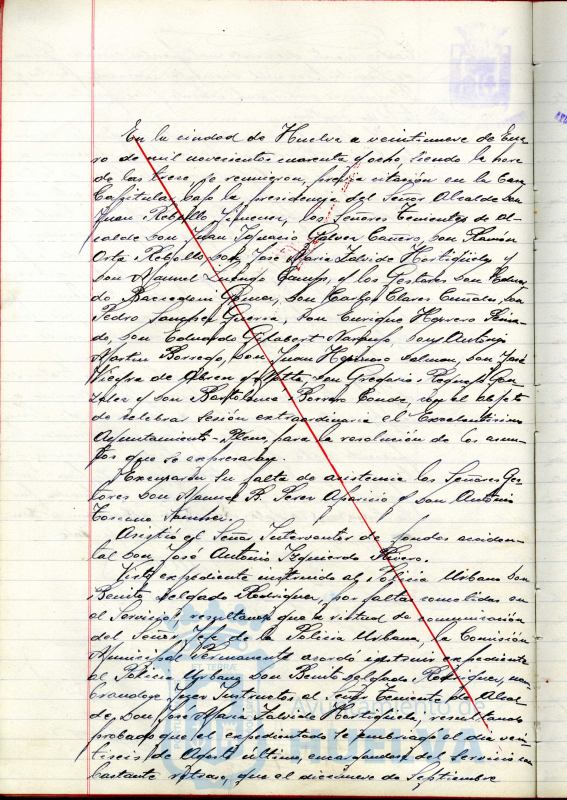 En la ciudad de Huelva a veintinueve de Ene-
ro de mil novecientos cuarenta y ocho, siendo la hora
de las trece, se reunieron, previa citación en la Casa
Capitular, bajo la presidencia del Señor Alcalde Don
Juan Rebollo Jimenez, los Señores Tenientes de Al-
calde Don Juan Ignacio Galvez Cañero, Don Ramón
Orta Rebollo, Don José Maria Zalvide Hortigüela y
Don Manuel Camps, y los Gestores Don
Don Carlos Clares Don
Pedro Sanchez Guerra, Don Enrique Herrero
Don Eduardo Gilabert Naranjo, Don Antonio
Martin Borrego, Don Juan Don José
de Abreu y Motta, Don Gregorio Gon-
zalez y Don Bartolomé Borrero Conde, con el objeto
de celebrar sesión extraordinaria el Excelentísimo
Ayuntamiento-Pleno, para la resolución de los asun-
tos que se expresaran.
Excusaron su falta de asistencia los Señores Ges-
tores Don Manuel R. Perez Aparicio y Don Antonio
Toscano Sanchez.
Asistió el Señor Interventor de fondos acciden-
tal Don José Antonio Izquierdo Rivero.
Visto expediente instruido al Policía Urbano Don
Benito Delgado Rodriguez, por faltas cometidas en
el Servicio, resultando que a virtud de comunicación
del Señor Jefe de la Policía Urbana, la Comisión
Municipal Permanente acordó instruir expediente
al Policía Urbano Don Benito Delgado Rodriguez, nom-
brandose Juez Instructor al Señor Teniente de Alcal-
de Don José Maria Zalvide Hortigüela, resultando
probado que el expedientado se embriagó el dia vein-
tiseis de Agosto último, encargandose del Servicio con
bastante retraso, que el diecinueve de Septiembre
Ayuntamiento de
HUELVA